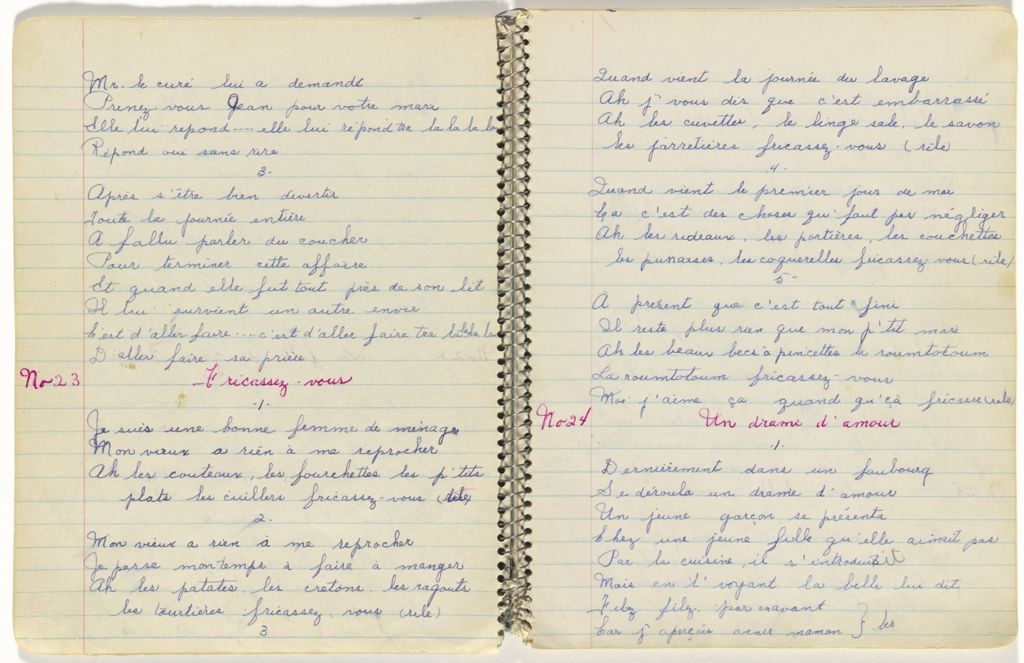 Mr. le curé lui a demandé
Prenez-vous Jean pour votre mari
Elle lui repond.... elle lui répond tra la la la la
Répond oui sans rire
3-
Après s'être bien divertir
Toute la journée entière
A fallu parler du coucher
Pour terminer cette affaire
Et quand elle fut tout près de son lit
Il lui survient un autre envie
C'est d'aller faire.... c'est d'aller faire tra la la la la
D'aller faire sa prière
No 23 Fricassez-vous
-1-
Je suis une bonne femme de ménage
Mon vieux a rien à me reprocher
Ah les couteaux, les fourchettes les p'tits
plats les cuillers fricassez-vous (rile)
2-
Mon vieux a rien à me reprocher
Je passe mon temps à faire à manger
Ah les patates, les cretons, les ragouts
les tourtières fricassez-vous (rile)
3
Quand vient la journée du lavage
Ah j'vous dis que c'est embarrassé
Ah les cuvettes, le linge sale, le savon
les jarretières fricassez-vous (rile)
-4-
Quand vient le premier jour de mai
Ça c'est des choses qu'faut pas négliger
Ah les rideaux, les portières, les couchettes
les punaises, les coquerelles fricassez vous (rile)
5-
A présent que c'est tout fini
Il reste plus rien que mon p'tit mari
Ah les beaux becs à pincettes la roumtotoum
La roumtotoum fricassez-vous
Moi j'aime ça quand qu'çà fricasse (rile)
No 24 Un drame d'amour
-1-
Dernièrement dans un faubourg
Se déroula un drame d'amour
Un jeune garçon se présenta
Chez une jeune fille qu'elle aimait pas
Par la cuisine, il s'introduit
Mais en l'voyant la belle lui dit
Filez filez par en avant
Car j'aperçois venir maman } bis